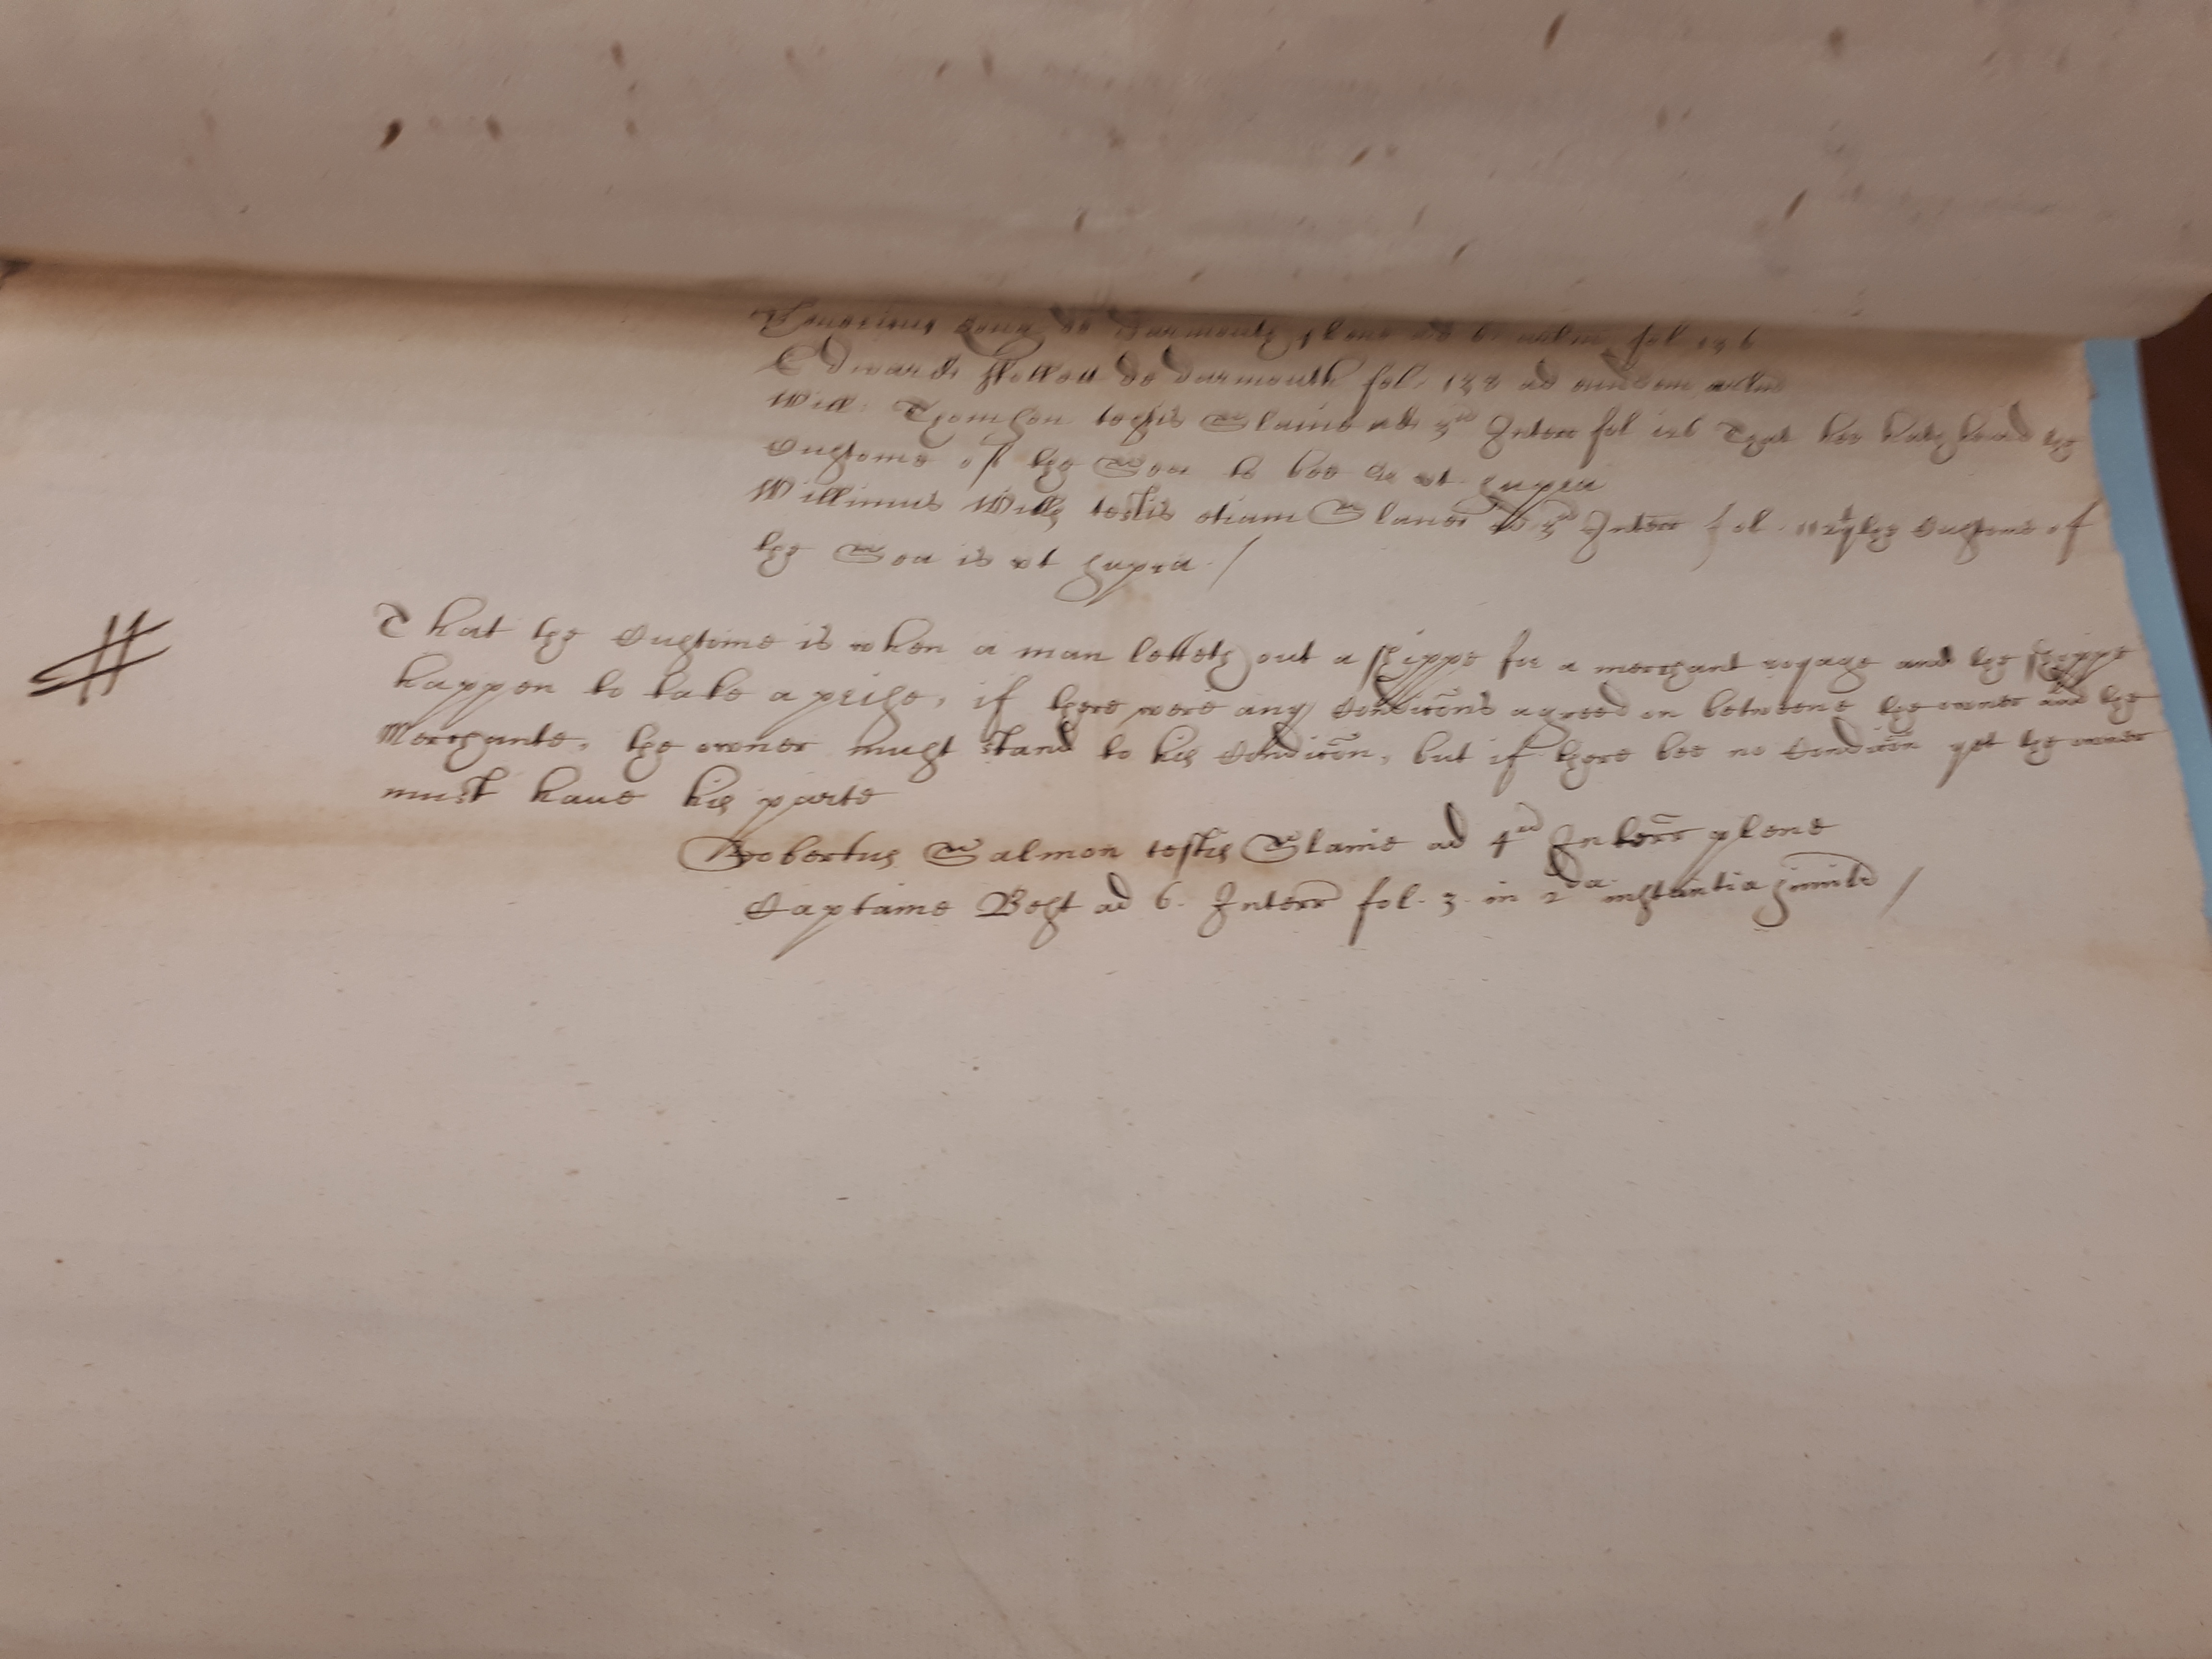 de Darmouth plene ad 6. artm fol 136
Edward de Darmouth fol. 138 ad eundem artm
Will: Thomson testis Slanie ad 3um Interr fol 126 That hee hath heard the
Custome of the Sea to bee as vt supra
Willimus Wills testis etiam Slanei ad 3um Interr fol. the Custome of
the Sea is vt supra /
That the Custome is when a man letteth out a shippe for a merchant voyage and the shippe
happen to take a prise, if there were any Condicõns agreed on betweene the owner and the
Merchante, the owner must stand to his Condicõn, but if there bee no Condicõn yet the owner
must haue his parte
Robertus Salmon testis Slanie ad 4um Interr plene
Captaine Best ad 6. Interr fol. 3. in 2da instantia